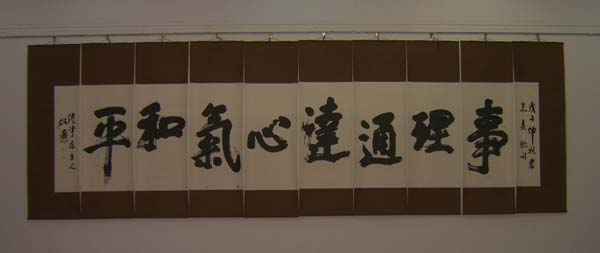 戊子仲秋書
事理通達心氣和平